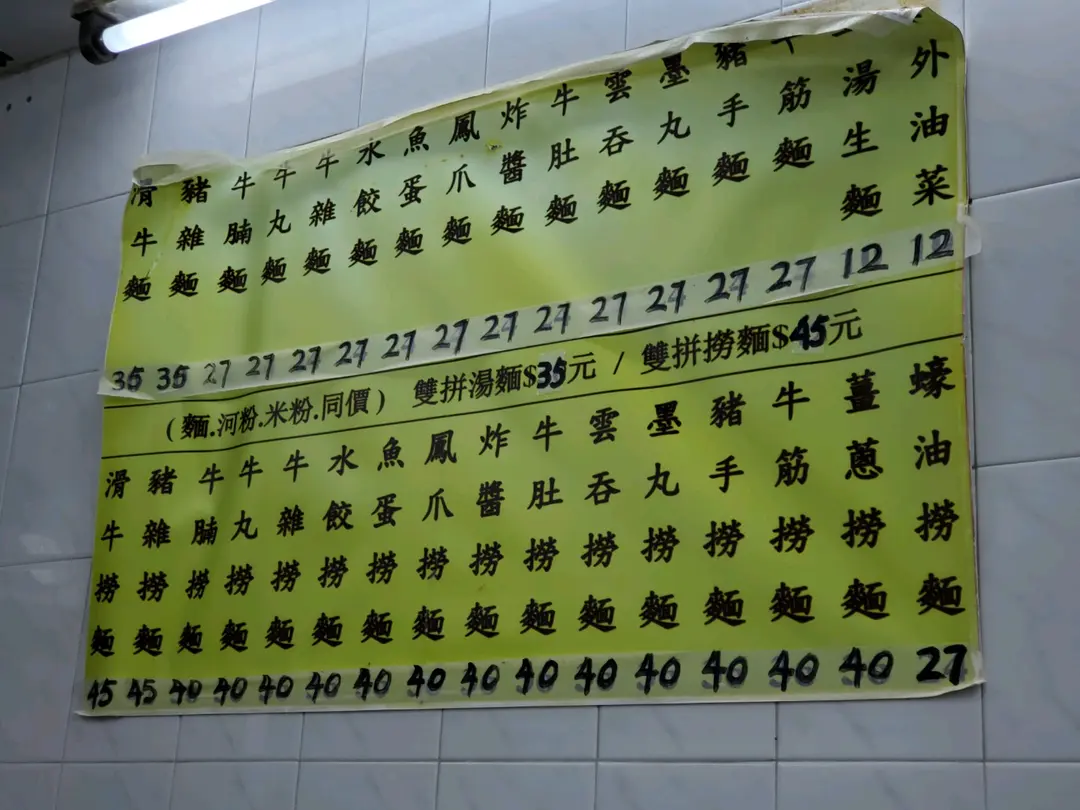 外油菜 12
湯生麵 12
筋麵 27
豬手麵 27
墨丸麵 27
雲吞麵 27
牛肚麵 27
炸醬麵 27
鳳爪麵 27
魚蛋麵 27
水餃麵 27
牛雜麵 27
牛丸麵 27
牛腩麵 27
豬雜麵 35
滑牛麵 35
(麵.河粉.米粉.同價) 雙拼湯麵$35元 / 雙拼撈麵$45元
蠔油撈麵 27
薑蔥撈麵 40
牛筋撈麵 40
豬手撈麵 40
墨丸撈麵 40
雲吞撈麵 40
牛肚撈麵 40
炸醬撈麵 40
鳳爪撈麵 40
魚蛋撈麵 40
水餃撈麵 40
牛雜撈麵 40
牛丸撈麵 40
牛腩撈麵 40
豬雜撈麵 45
滑牛撈麵 45